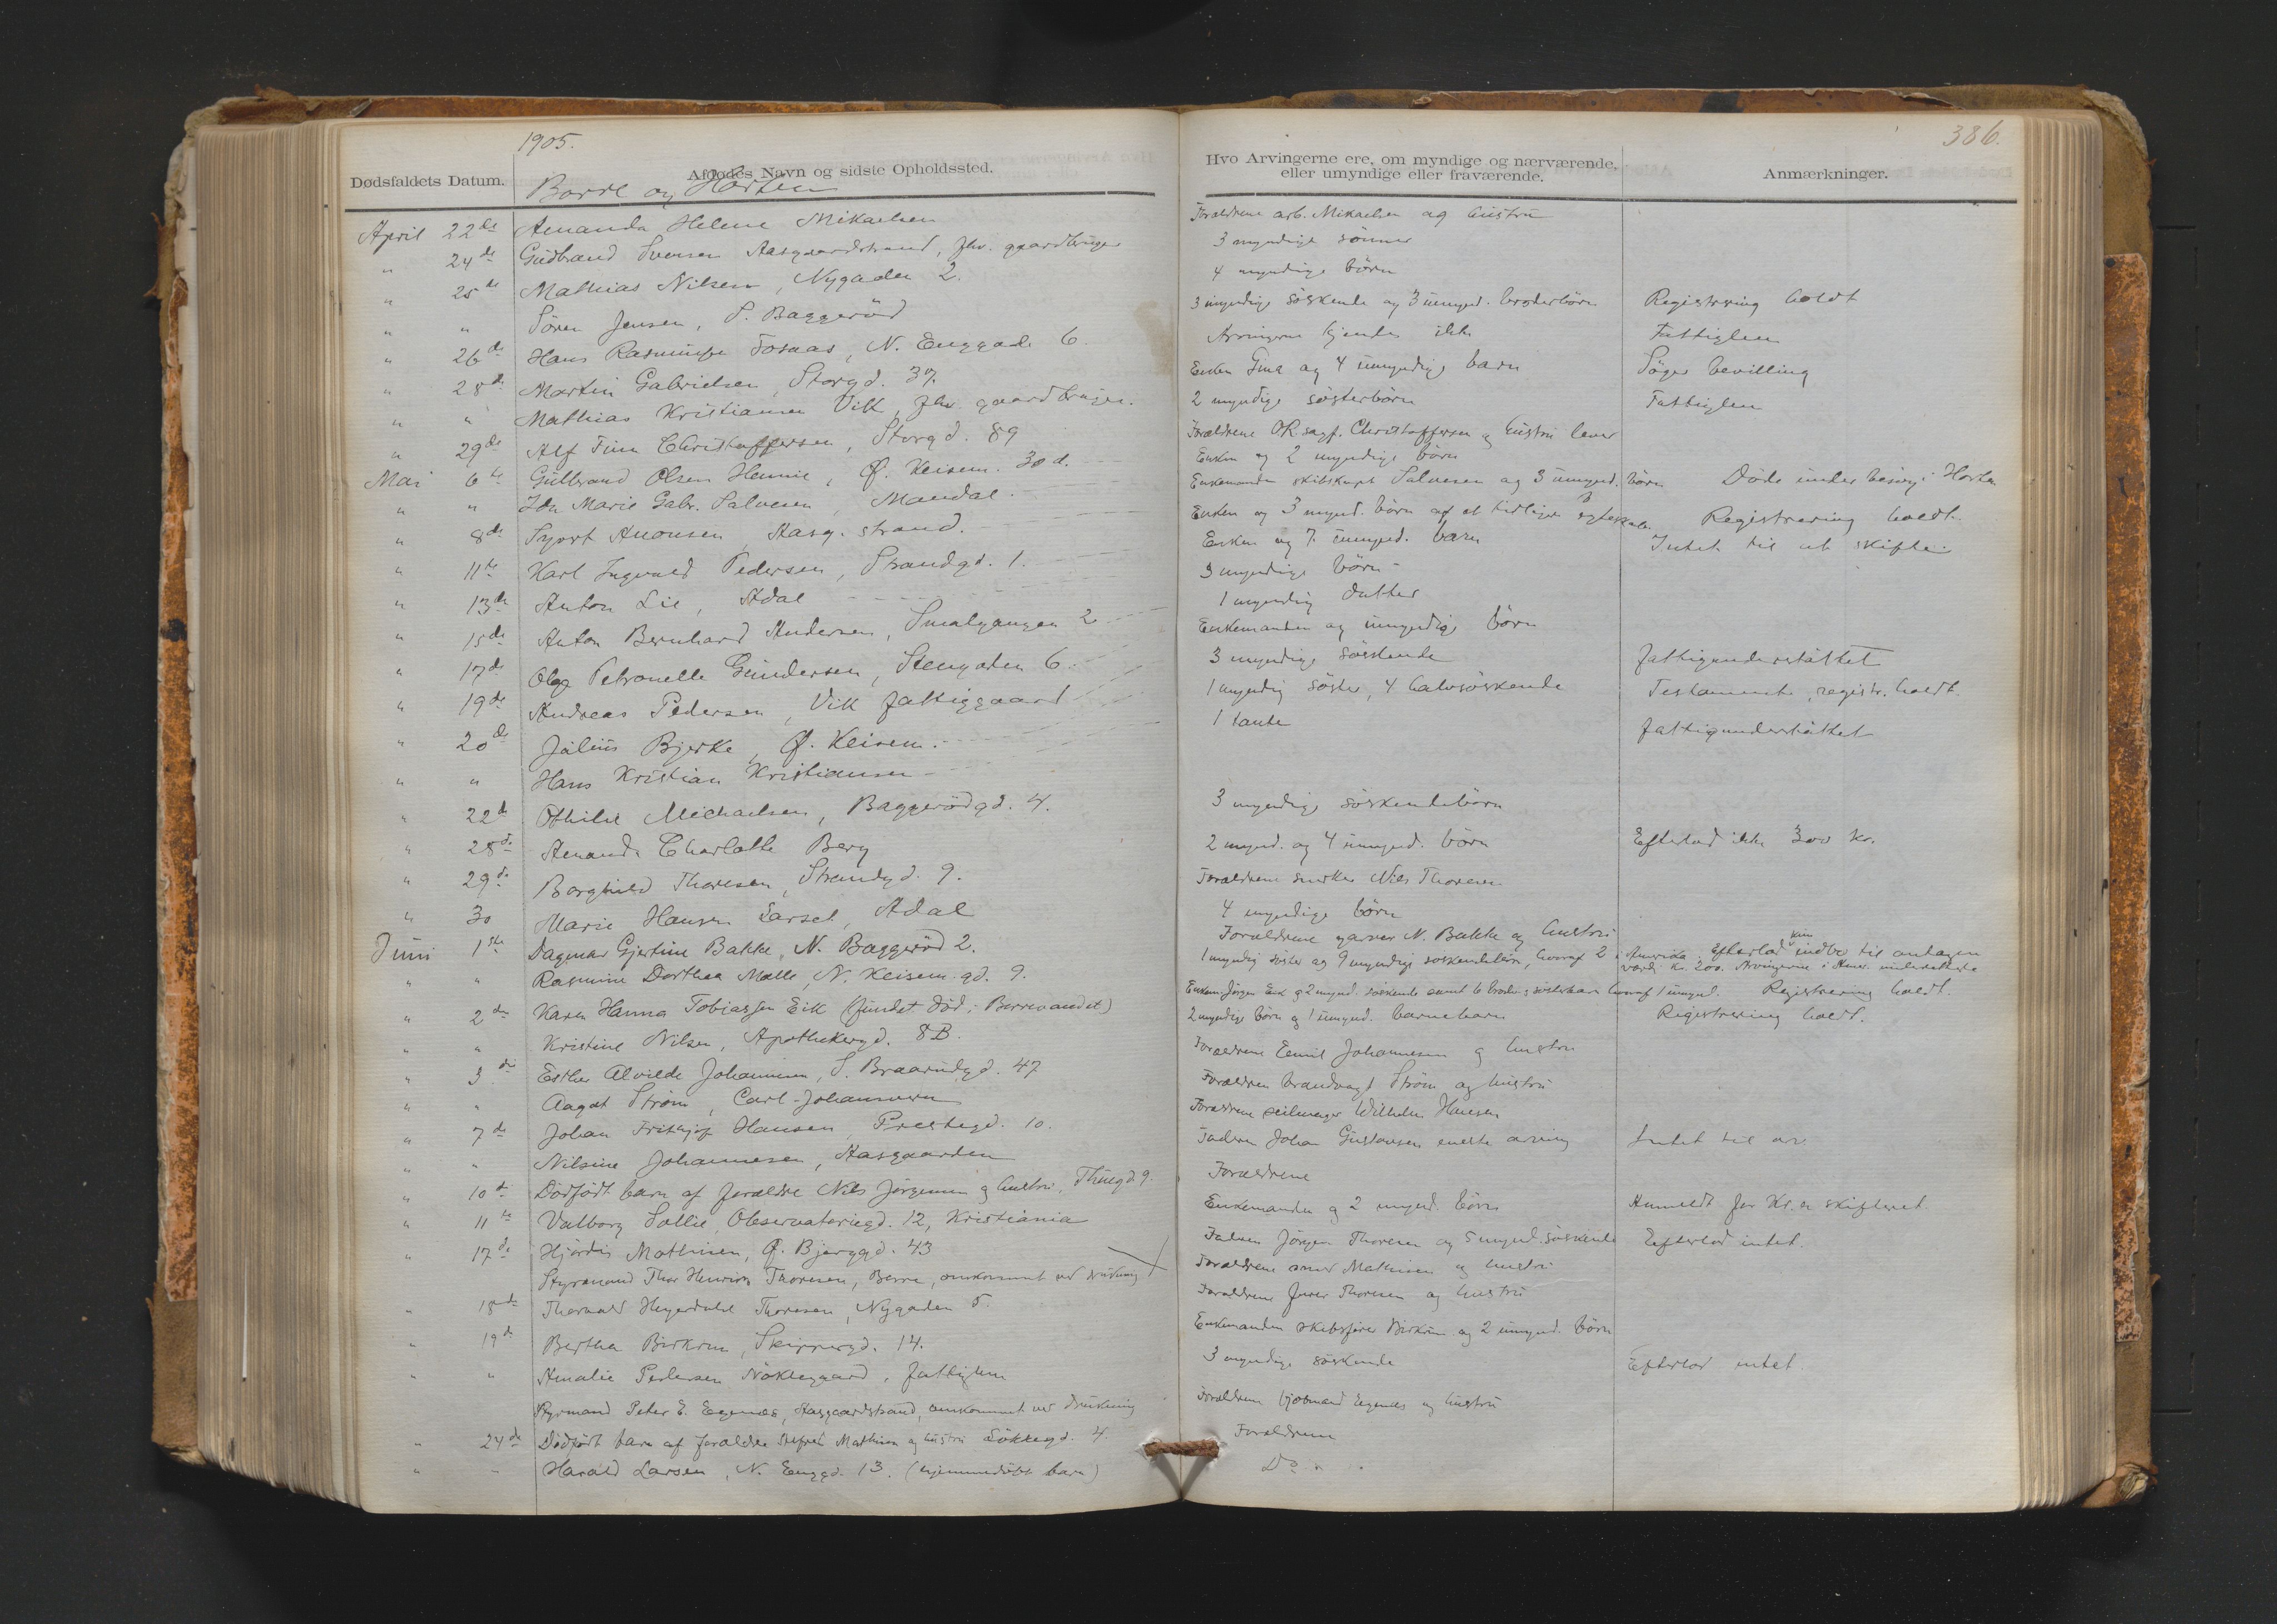 1905.
Dødsfaldets Datum.
Afdødes Navn og sidste Opholdssted.
Borre og Horten
April 22de Amanda Helene Mikaelsen
" 24de Gudbrand Svensen Aasgaardstrand, fhv. gaardbruger
" 25de Mathias Nilsen, Nygaden 2.
" " Sören Jensen, S. Baggeröd
" 26de Hans Rasmussen Tosaas, N. Enggade 6
" 28de Martin Gabrielsen, Storgd. 37.
" " Mathias Kristiansen Vik, fhv gaardbruger.
" 29de Alf Finn Christoffersen, Storgd. 89
Mai 6te Gulbrand Olsen Hennie, Ø. Keisem. 30 d.
" " Ida Marie Gabr. Salvesen, Mandal.
" 8de Syvert Anonsen, Aasg. strand.
" 11te Karl Ingvald Pedersen, Strandgd. 1.
" 13de Anton Lie, Adal
" 15de Anton Bernhard Andersen, Smalgangen 2
" 17de Olga Petronelle Gundersen, Stengaden 6.
" 19de Andreas Pedersen, Vik fattiggaard
" 20de Julius Bjerke, Ø. Keisem.
" " Hans Kristian Kristiansen
" 22de Othilie Michaelsen, Baggerödgd. 4.
" 28de Amanda Charlotte Berg
" 29de Borghild Thoresen, Strandgd. 9.
" 30 Marie Hansen Sarset, Adal
Juni 1ste Dagmar Gjertine Bakke, N. Baggeröd 2.
" " Rasmine Dorthea Malle, N. Keisem.gd. 9.
" 2den Karen Hanna Tobiassen Eik (fundet död i Borrevandet)
" " Kristine Nilsen, Apothekergd. 8B.
" 3die Esther Alvilde Johannesen, S. Braarudgd. 47
" " Aagot Ström, Carl-Johansvern
" 7de Johan Fritjof Hansen, Prestegd. 10.
" " Nilsine Johannesen, Aasgaarden
" 10de Dödfödt barn af forældre Nils Jörgensen g hustru, Thuegd 9.
" 11te Valborg Sollie, Observatoriegd. 12, Kristiania
" 17de Hjördis Mathisen, Ø. Bjerggd. 43
Styrmand Thor Henrik Thoresen, Borre, omkommet ved drukning
" 18de Thorvald Heyerdahl Thoresen, Nygaden 5.
" 19de Bertha Birkrem, Skippergd. 14.
" " Amalie Pedersen Nökleggaard, fattiglem
Styrmand Peter E. Egenæs, Aasgaardstrand, omkommet ved drukning
" 24de Dödfödt barn af forældre Mathisen og hustru Lökkegd. 4.
" Harald Larsen, N. Enggd. 13. (hjemmedöbt barn)
386.
Hvo Arvingerne ere, om myndige og nærværende,
eller umyndige eller fraværende.
Anmærkninger.
Forældrene arb. Mikaelsen og hustru
3 myndige sönner
4 myndige börn
3 myndige söskende og 3 umynd. broderbörn Registrering holdt
Arvingerne kjendes ikke Fattiglem
Enken Gina og 4 umyndige barn Söger bevilling
2 myndige sösterbörn Fattiglem
Forældrene OR.sagf. Christoffersen g hustru lever
Enken og 2 myndige börn
Enkemanden skibskapt Salvesen og 3 umynd. börn Döde under besög i Horten
Enken og 3 mynd. börn af et tidligere egteskab Registrering holdt
Enken og 7 umynd. barn Intet til at skifte.
3 myndige börn
1 myndig datter
Enkemanden og umyndige börn
3 myndige söskende fattigunderstöttet
1 myndig söster, 4 halvsöskende Testamente, registr. holdt.
1 tante fattigunderstöttet
3 myndige söskendebörn
2 mynd. og 4 umynd. börn Efterlod ikke 300 kr.
Forældrene snekker Nils Thoresen
4 myndige börn
Forældrene garver N. Bakke og hustru
1 myndig söster og 9 myndige söskendebörn, hvoraf 2 i Amerika. Efterlod kun indbo til antagen
værdi kr. 200. Arvingerne i Amer. underrettede
Enkem. Jörgen Eik g 2 mynd. söskende samt 6 broder g sösterbarn hvoraf 1 umynd. Registrering holdt.
2 myndige börn g 1 umynd. barnebarn Registrering holdt.
Forældrene Emil Johannesen g hustru
Forældrene brandvagt Ström og hustru
Forældrene seilmager Wilhelm Hansen
Faderen Johan Gustavsen eneste arving Intet til arv
Forældrene
Enkemanden g 2 mynd. börn Anmeldt for Kr.a skifteret.
Faderen Jörgen Thoresen og 5 mynd. söskende Efterlod intet.
Forældrene Mathisen og hustru
Forældrene Thoresen og hustru
Enkemanden skibsförer Birkrem og 2 umynd. börn
3 myndige söskende Efterlod intet.
Forældrene kjöbmand Egenæs og hustru
Forældrene
Do